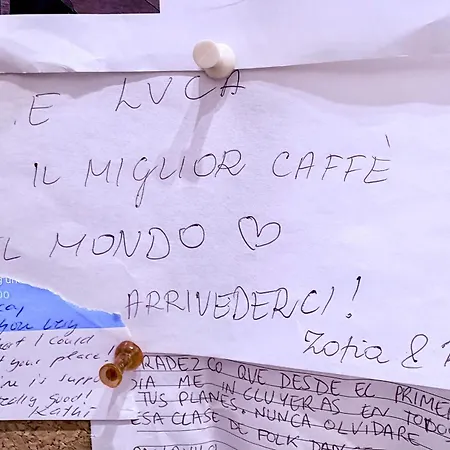 .E LUCA
IL MIGLIOR CAFFÈ
L MONDO ♡
ARRIVEDERCI!
Zofia &
you very
I could
your place!
is suppo
really good!
Kathr
RADEZCO QUE DESDE EL PRIMER
DIA ME INCLUYERAS EN TODOS
TUS PLANES. NUNCA OLVIDARE
ESA CLASE DE FOLK DAN